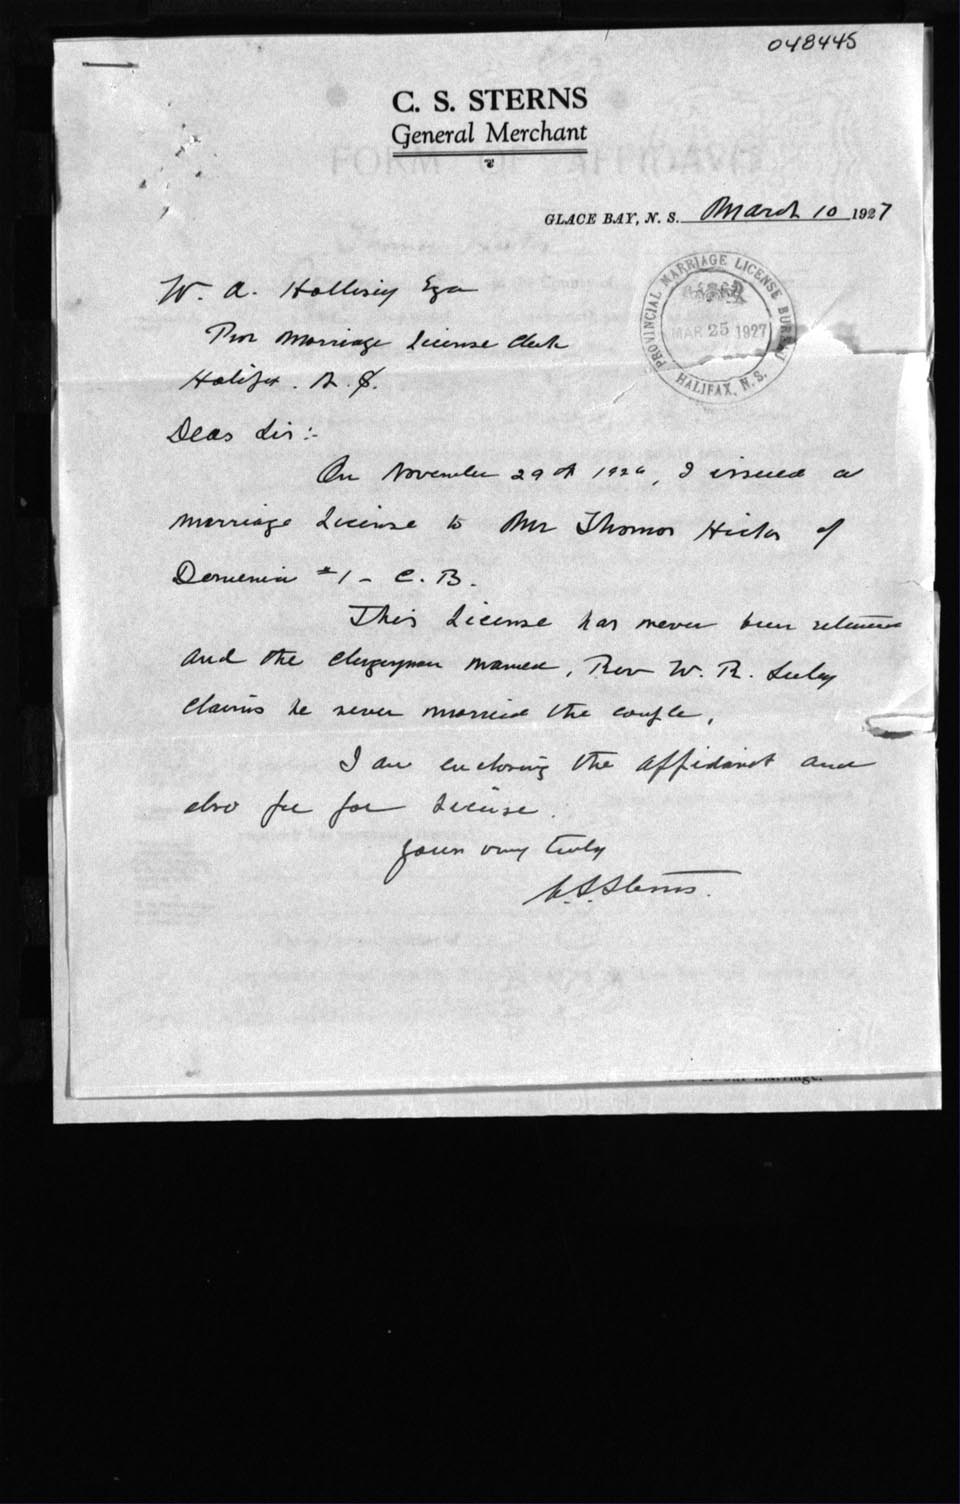 048445
C. S. STERNS
General Merchant
GLACE BAY, N. S. March 10 1927
PROVINCIAL MARRIAGE LICENSE BUREAU
MAR 25 1927
HALIFAX, N. S.
W. A. Hallisey Esq
Prov Marriage License Clerk
Halifax. N. S.
Dear Sir:-
On November 29th 1926, I issued a
marriage License to Mr Thomas of
#1 - C. B.
This License has never been returned
and the clergyman named, Rev W. R. Seeley
claims he never married the couple,
I am enclosing the affidavit and
also fee for License.
yours very truly
C. S. Sterns.